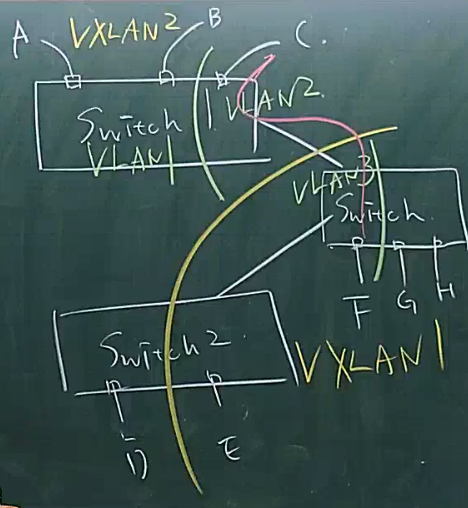 A VXLAN2 B C.
Switch 1 VLAN2
VLAN1
VLAN3
Switch
F G H
Switch 2
VXLAN1
D E